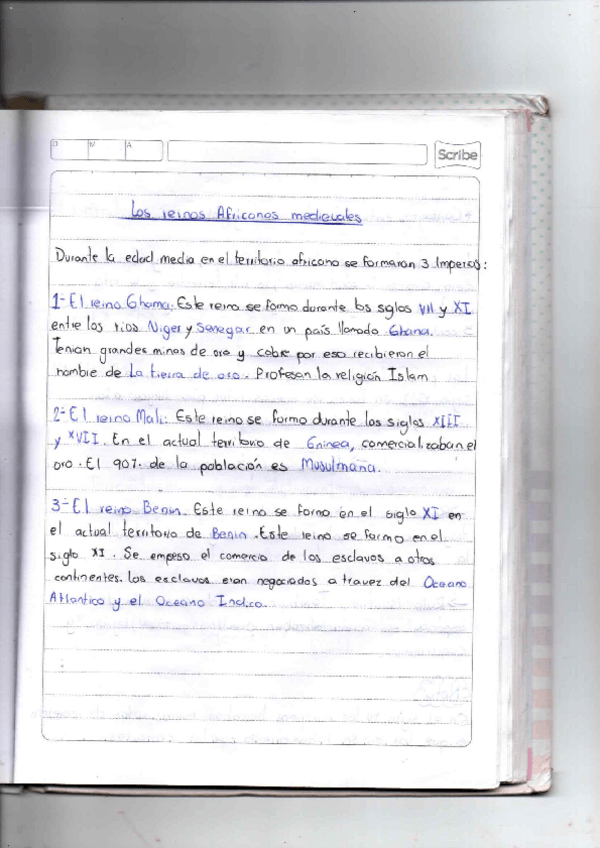 D M A
Scribe
Los reinos Africanos medievales
Durante la edad media en el territorio africano se formaron 3 Imperios:
1- El reino Ghama. Este reino se formo durante los siglos VII y XI
entre los rios Niger y Senegar en un país llamado Ghana.
Tenian grandes minas de oro y cobre por eso recibieron el
nombre de La tierra de oro. Profesan la religión Islam
2- El reino Mali: Este reino se formo durante los siglos XIII
y XVII. En el actual territorio de Guinea, comercializaban el
oro. El 90% de la población es Musulmana.
3- El reino Benin. Este reino se formo en el siglo XI en
el actual territorio de Benin. Este reino se formo en el
siglo XI. Se empeso el comercio de los esclavos a otros
continentes. Los esclavos eran negociados a travez del Oceano
Atlantico y el Oceano Indico.